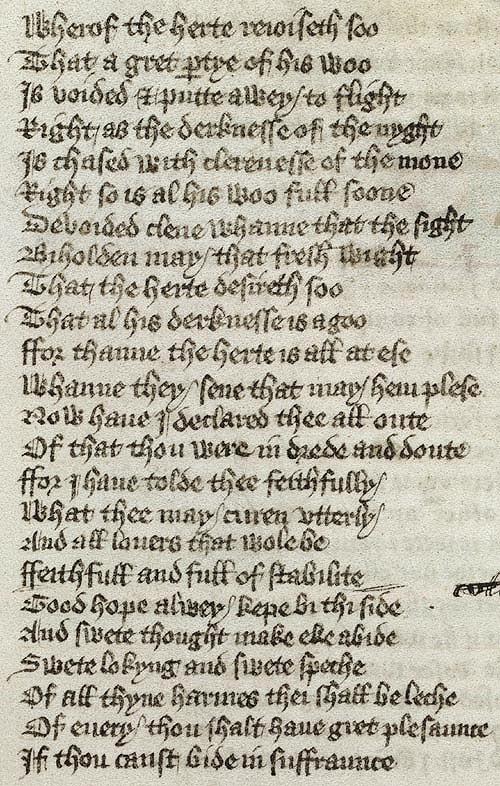 Wherof the herte reioiseth soo
That a gret ptye of his woo
Is voided & putte awey / to flight
Right / as the derknesse of the nyght
Is chased with clerenesse of the mone
Right so is al his woo full soone
Devoided clene whanne that the sight
Biholden may / that fresh wight
That / the herte desireth soo
That al his derknesse is agoo
ffor thanne the herte is all at ese
Whanne they / sene that may / hem plese
Now haue I declared thee all oute
Of that thou were in drede and doute
ffor I haue tolde thee feithfully /
What thee may / curen vtterly /
And all louers that wole be
ffeithfull and full of stabilite
Good hope alwey / kepe bi thi side
And swete thought make eke abide
Swete lokyng and swete speche
Of all thyne harmes thei shall be leche
Of euery / thou shalt haue gret plesaunce
If thou canst bide in suffraunce